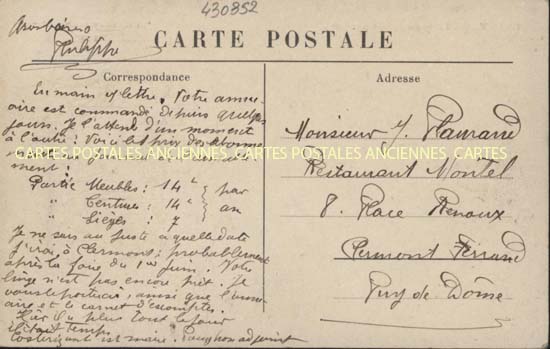 430852
CARTE POSTALE
Correspondance
Adresse
En main v/ lettre. Votre annu-
aire est commandé depuis quelques
jours. Je l'attend d'un moment
à l'autre. Voici les prix des abonne-
CARTES POSTALES ANCIENNES CARTES POSTALES ANCIENNES CARTES POSTALES ANCIENNES
ment :
Partie Meubles : 14 f } par
" Ceintures : 14 f } an
" Sièges : 7 f
Je ne sais au juste à quelle date
j'irai à Clermont ; probablement
après la foire du 1er juin. Votre
linge n'est pas encore prêt. Je
vous le porterai, ainsi que l'annu-
aire et le carnet d'escomptes.
Hier il a plu tout le jour
est maire.
adjoint
Monsieur J.
Restaurant Montel
8. Place Renoux
Clermont Ferrand
Puy de Dôme